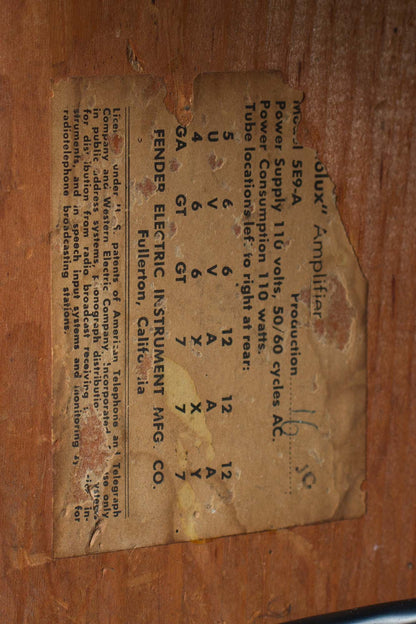 olux" Amplifier
Model 5E9-A Production 16
Power Supply 110 volts, 50/60 cycles AC.
Power Consumption 110 watts.
Tube locations left to right at rear:
5 6 6 12 12 12
U V V A A A
4 6 6 X X Y
GA GT GT 7 7 7
FENDER ELECTRIC INSTRUMENT MFG CO.
Fullerton, California
under U.S. patents of American Telephone and Telegraph
Company and Western Electric Company, Incorporated use only
in public address systems, phonograph distribution systems
for distribution from radio broadcast receiving in-
struments, and in speech input systems and monitoring for
radiotelephone broadcasting stations.